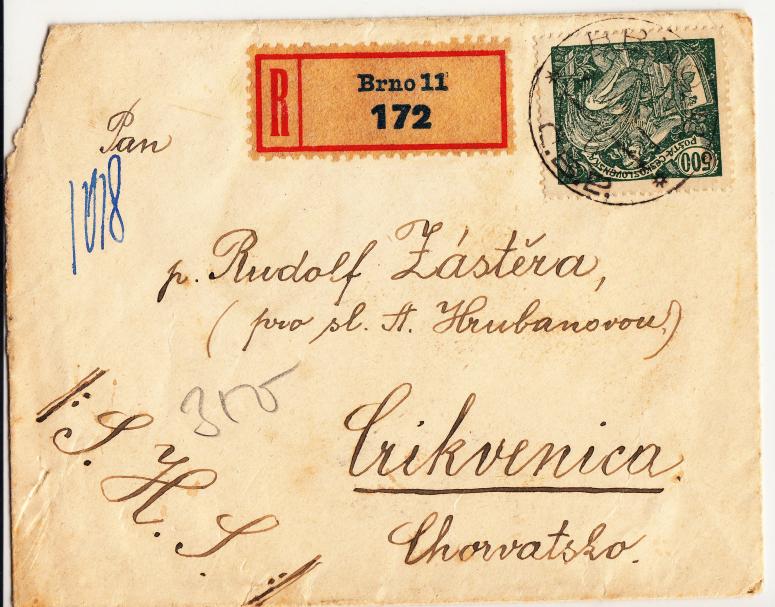 R
Brno 11
172
500
POŠTA ČESKOSLOVENSKÁ
Č.S.R.
Pan
1018
p. Rudolf Zástěra,
(pro sl. A. Hrubanovou)
Crikvenica
Chorvatsko.
/: S. H. S. :/